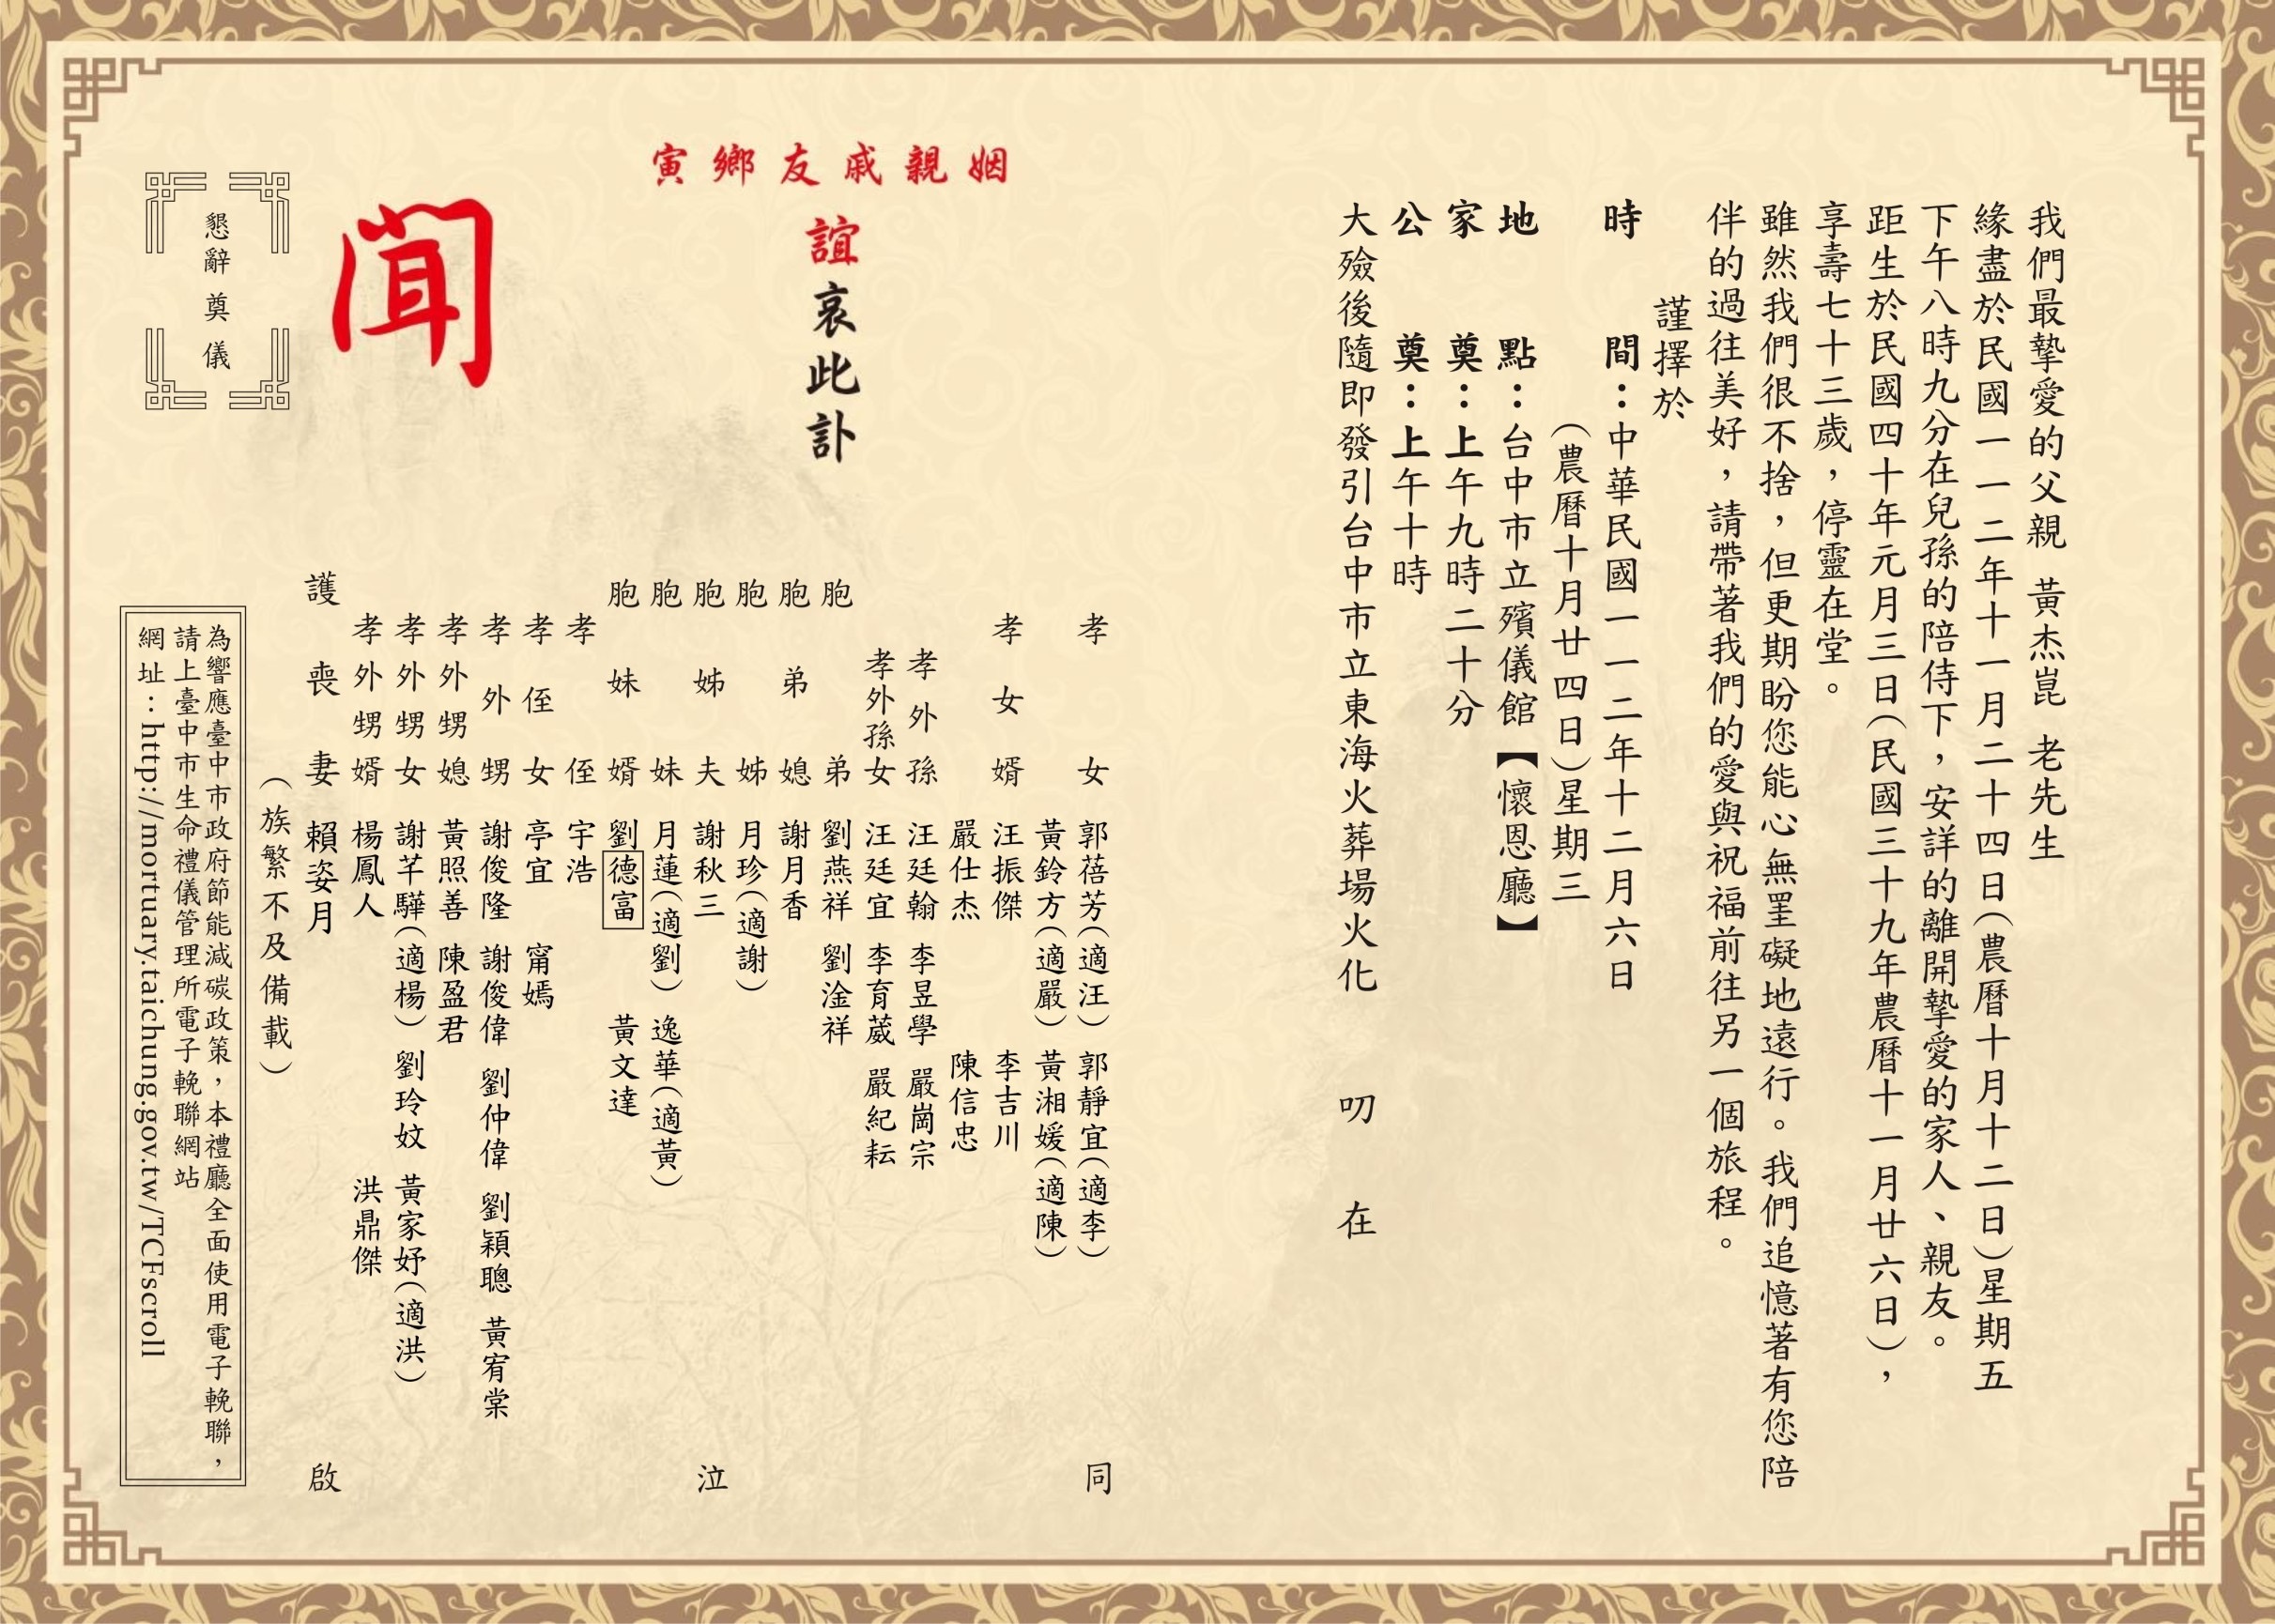 我們最摯愛的父親 黃杰崑 老先生
緣盡於民國一一二年十一月二十四日(農曆十月十二日)星期五
下午八時九分在兒孫的陪侍下，安詳的離開摯愛的家人、親友。
距生於民國四十年元月三日(民國三十九年農曆十一月廿六日)，
享壽七十三歲，停靈在堂。
雖然我們很不捨，但更期盼您能心無罣礙地遠行。我們追憶著有您陪
伴的過往美好，請帶著我們的愛與祝福前往另一個旅程。
謹擇於
時 間：中華民國一一二年十二月六日
(農曆十月廿四日)星期三
地 點：台中市立殯儀館【懷恩廳】
家 奠：上午九時二十分
公 奠：上午十時
大殮後隨即發引台中市立東海火葬場火化 叨 在
姻親戚友鄉寅
誼哀此訃
聞
懇辭 奠 儀
孝 女 郭蓓芳(適汪) 郭靜宜(適李)
黃鈴方(適嚴) 黃湘媛(適陳)
孝 女 婿 汪振傑 李吉川
嚴仕杰 陳信忠
孝 外 孫 汪廷翰 李昱學 嚴崗宗
孝外孫女 汪廷宜 李育葳 嚴紀耘
胞 弟 劉燕祥 劉淦祥
胞 弟 媳 謝月香
胞 姊 月珍(適謝)
胞 姊 夫 謝秋三
胞 妹 月蓮(適劉) 逸華(適黃)
胞 妹 婿 劉德富 黃文達
孝 侄 宇浩
孝 侄 女 亭宜 甯嫣
孝 外 甥 謝俊隆 謝俊偉 劉仲偉 劉穎聰 黃宥棠
孝外甥媳 黃照善 陳盈君
孝外甥女 謝芊驊(適楊) 劉玲妏 黃家妤(適洪)
孝外甥婿 楊鳳人 洪鼎傑
護 喪 妻 賴姿月
同 泣 啟
(族繁不及備載)
為響應臺中市政府節能減碳政策，本禮廳全面使用電子輓聯，
請上臺中市生命禮儀管理所電子輓聯網站
網址：http://mortuary.taichung.gov.tw/TCFscroll